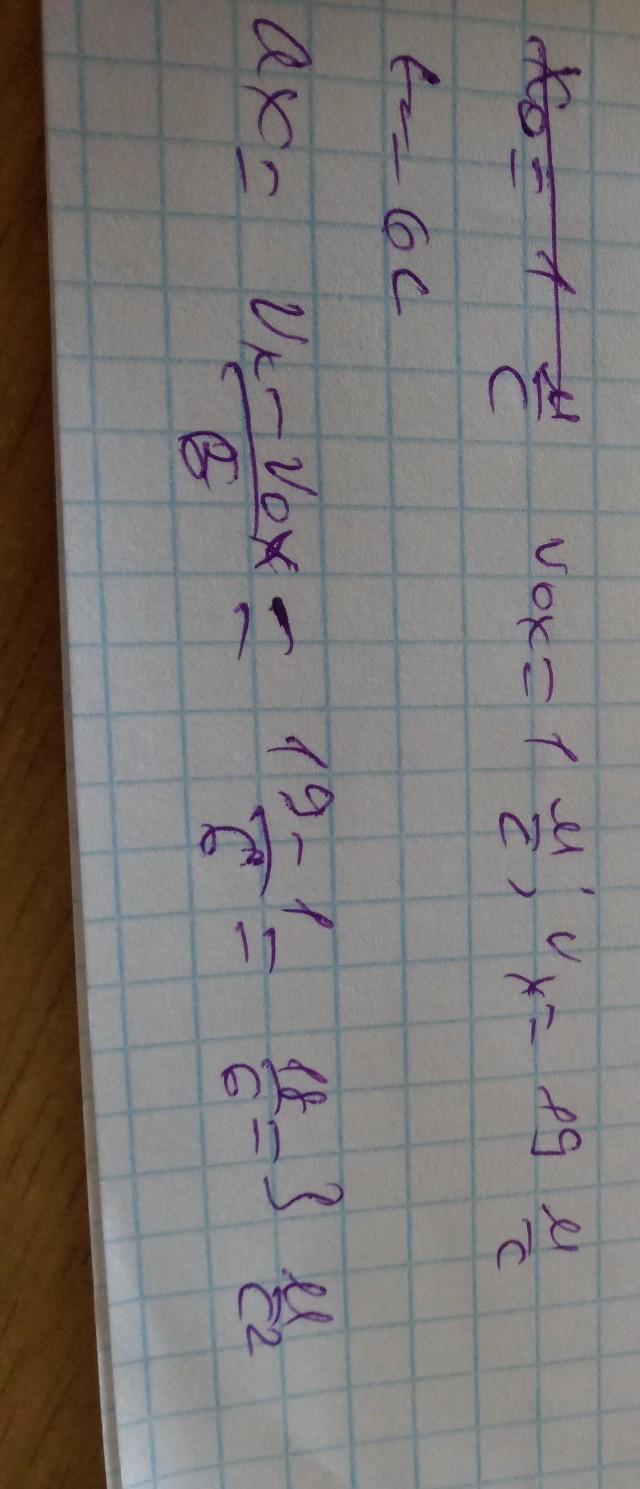 x₀ = 1 м/с v₀x = 1 м/с, vx = 19 м/с
t = 6с
ax = (vx - v₀x)/t = (19 - 1)/6 = 18/6 = 3 м/с²